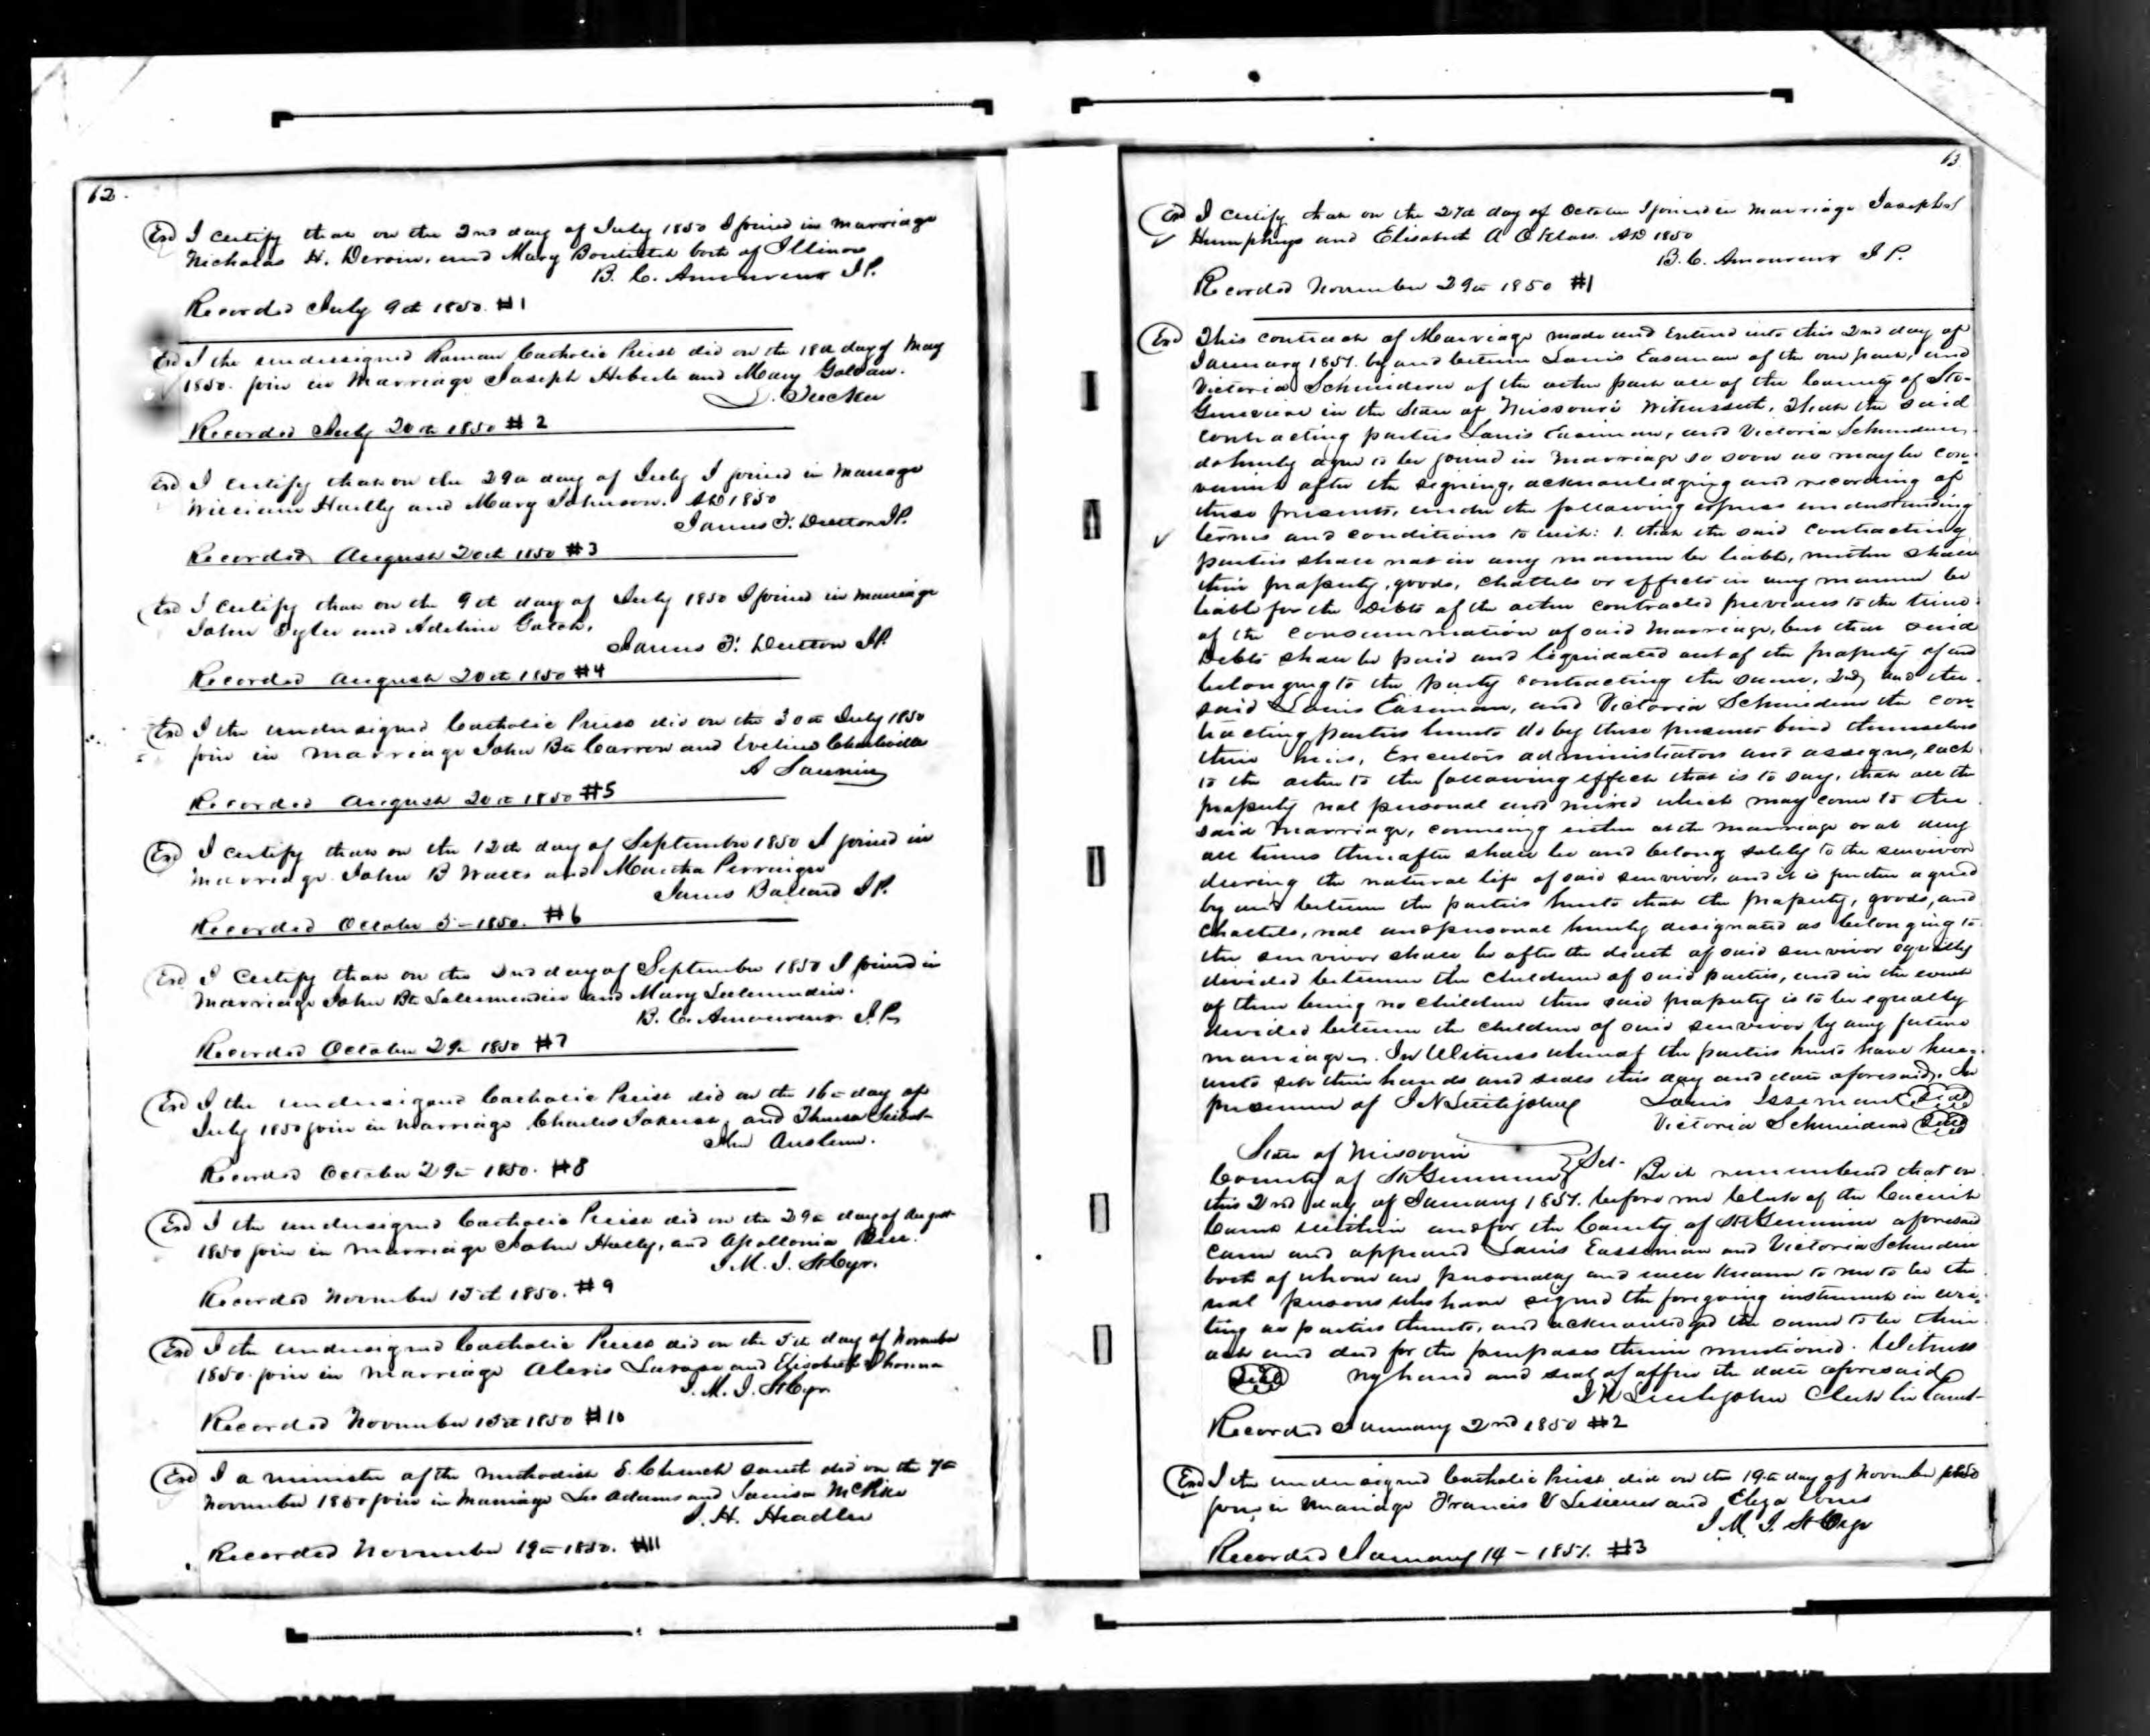 12.
Exd I certify that on the 2nd day of July 1850 I joined in marriage
Nicholas H. Deroin, and Mary Boutillet both of Illinois
B. C. Amoureux J P.
Recorded July 9th 1850. #1
Exd I the undersigned Roman Catholic Priest did on the 18th day of May
1850. join in Marriage Joseph Heberle and Mary
Recorded July 20th 1850 #2
Exd I certify that on the 29th day of July I joined in marriage
William Hailly and Mary Johnson. AD 1850
James F. Dutton J P.
Recorded August 20th 1850 #3
Exd I certify that on the 9th day of July 1850 I joined in marriage
John Tyler and Adeline
James F. Dutton J P.
Recorded August 20th 1850 #4
Exd I the undersigned Catholic Priest did on the 30th July 1850
join in marriage John Bte Carrow and Eveline
A Saunier
Recorded August 20th 1850 #5
Exd I certify that on the 12th day of September 1850 I joined in
marriage John B Watts and Martha
James Ballard J P.
Recorded October 5 - 1850. #6
Exd I certify that on the 2nd day of September 1850 I joined in
marriage John Bte and Mary
B. C. Amoureux J. P.
Recorded October 29th 1850 #7
Exd I the undersigned Catholic Priest did on the 16th day of
July 1850 join in marriage Charles and Theresa
John Anselm.
Recorded October 29th 1850. #8
Exd I the undersigned Catholic Priest did on the 29th day of August
1850 join in marriage John Hally, and Apollonia
J. M. J. St Cyr.
Recorded November 15th 1850. #9
Exd I the undersigned Catholic Priest did on the 5th day of November
1850. join in marriage Alexis Larose and Elizabeth Thomure
J. M. J. St Cyr
Recorded November 15th 1850 #10
Exd I a minister of the Methodist E. Church South did on the 7th
November 1850 join in Marriage Adams and Louisa
J. H. Headlee
Recorded November 19th 1850. #11
13
Exd I certify that on the 27th day of October I joined in marriage Josephus
Humphreys and Elisabeth A AD 1850
B. C. Amoureux J P.
Recorded November 29th 1850 #1
Exd This contract of Marriage made and Entered into this 2nd day of
January 1851. by and between Louis Easeman of the one part, and
Victoria Schneiderin of the other part all of the County of Ste-
Genevieve in the State of Missouri Witnesseth, That the said
contracting parties Louis Easiman, and Victoria Schneiderin
do hereby agree to be joined in Marriage so soon as may be con-
venient after the signing, acknowledging and recording of
these presents, under the following express understanding
terms and conditions to wit: 1. that the said contracting
parties shall not in any manner be liable, neither shall
their property, goods, chattels or effects in any manner be
liable for the Debts of the other contracted previous to the time
of the consummation of said Marriage, but that said
Debts shall be paid and liquidated out of the property of and
belonging to the party contracting the same, 2nd, and the
said Louis Easeman, and Victoria Schneiderin the con-
tracting parties hereto do by these presents bind themselves
their heirs, Executors administrators and assigns, each
to the other to the following effect that is to say, that all the
property real personal and mixed which may come to the
said marriage, coming either at the marriage or at any
all times thereafter shall be and belong solely to the survivor
during the natural life of said survivor, and it is further agreed
by and between the parties hereto that the property, goods, and
chattels, real and personal hereby designated as belonging to
the survivor shall be after the death of said survivor equally
divided between the children of said parties, and in the event
of there being no children then said property is to be equally
devided between the children of said survivor by any future
marriage. In Witness whereof the parties hereto have here-
unto set their hands and seals this day and date aforesaid. In
presence of J N Littlejohn Louis Isseman Seal
Victoria Schneiderin Seal
State of Missouri
County of St Genevieve } Sct. Be it remembered that on
this 2nd day of January 1851. before me Clerk of the Circuit
Court within and for the County of St Genevieve aforesaid
came and appeared Louis Easseman and Victoria Schneiderin
both of whom are personally and well known to me to be the
real persons who have signed the foregoing instrument in wri-
ting as parties thereto, and acknowledged the same to be their
act and deed for the purposes therein mentioned. Witness
Seal my hand and seal of office the date aforesaid
J N Littlejohn Clerk Cir Court
Recorded January 2nd 1850 #2
Exd I the undersigned Catholic Priest did on the 19th day of November 1850
join in marriage Francis V Lesieur and Eliza
J. M. J. St Cyr
Recorded January 14 - 1851. #3